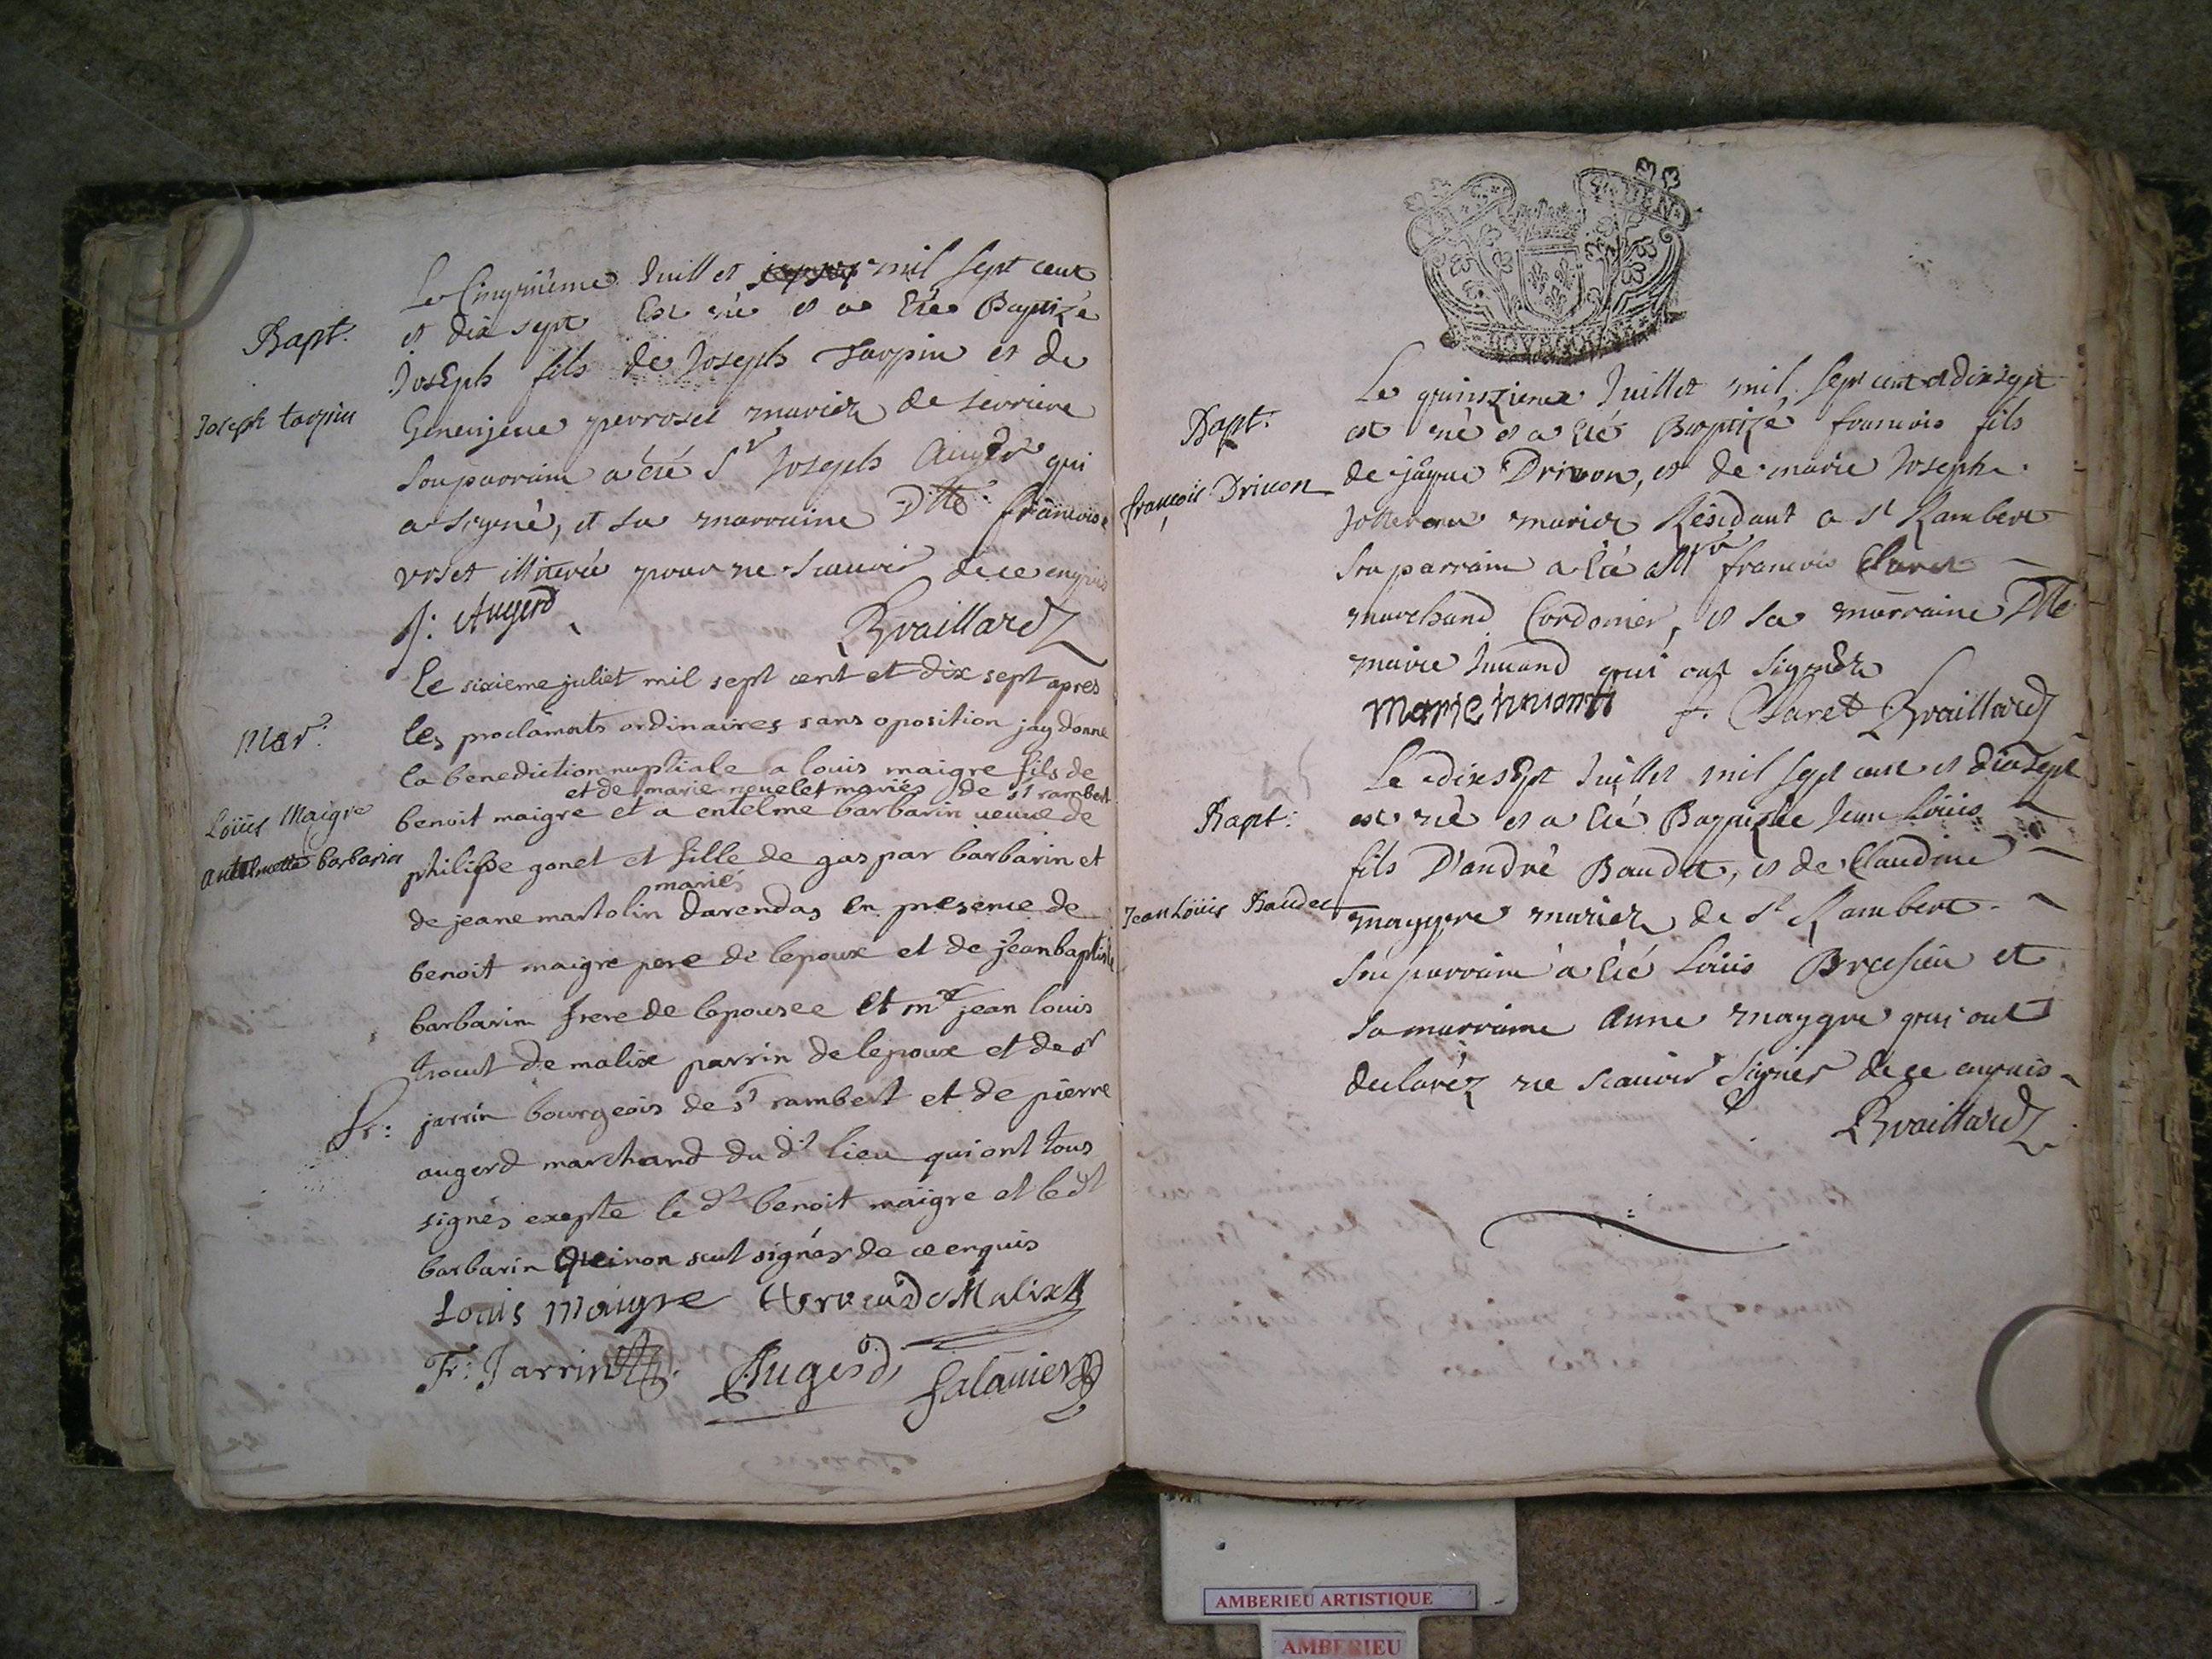 Bapt.
Joseph tarpin
Le Cinqnième Juillet mil sept cent
et dix sept Est né et a Eté Baptizé
JosEph fils de Joseph Tarpin et de
Genevieve perroset mariez de serriere
son parrain a été Sr Joseph Augerd qui
a signé, et sa marraine Dlle francoise
roset illiterée pour ne scauoir de ce enquis
J: Augerd
Bvaillard
Mar.
Loüis Maigre
antelmette barbarin
Le sixieme juliet mil sept cent et dix sept apres
les proclamats ordinaires sans oposition jay donne
la benediction nuptiale a louis maigre fils de
et de marie neuelet mariés de st rambert
benoit maigre et a entelme barbarin ueuue de
philippe gonet et fille de gaspar barbarin et
mariés
de jeane martolin darendas en presence de
benoit maigre pere de lepoux et de jean baptiste
barbarin frere de lepousee et mr jean louis
trocut de malix parrin de lepoux et de sr
fr: jarrin bourgeois de st rambert et de pierre
augerd marchand du dt lieu qui ont tous
signés exepte le dt benoit maigre et le dt
barbarin qui non scut signér de ce enquis
Louis Maigre de Malix
Fr: Jarrin Augerd Salauier
Bapt.
françois Driuon
Le quinzieme Juillet mil sept cent et dix sept
est né et a Eté Baptizé francois fils
de jaque Drivon, et de marie Joseph
mariez Résidant a St Rambert
son parrain a Eté Mre francois Claret
marchand Cordonier, et sa marraine Dlle
marie qui ont signéz
Marie f. Claret Bvaillard
Bapt:
Jean Loüis Baudet
Le dixsEpt Juillet mil sept cent et dixsept
est né et a Eté Baptizée Jean Loüis
fils D'andré Baudet, et de Claudine
maygre mariez de St Rambert
son parrain a Eté Loüis et
sa marraine Anne maygre qui ont
declaréz ne scauoir signer de ce enquis
Bvaillard
AMBERIEU ARTISTIQUE
AMBERIEU